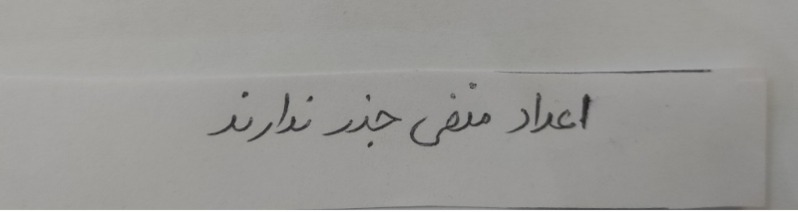 اعداد منفی جذر ندارند